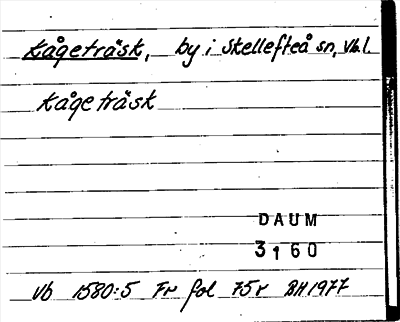 Kågeträsk, by i Skellefteå sn, Vb l.
Kågeträsk
DAUM
3160
Vb 1580:5 Fr fol 75r BH1977